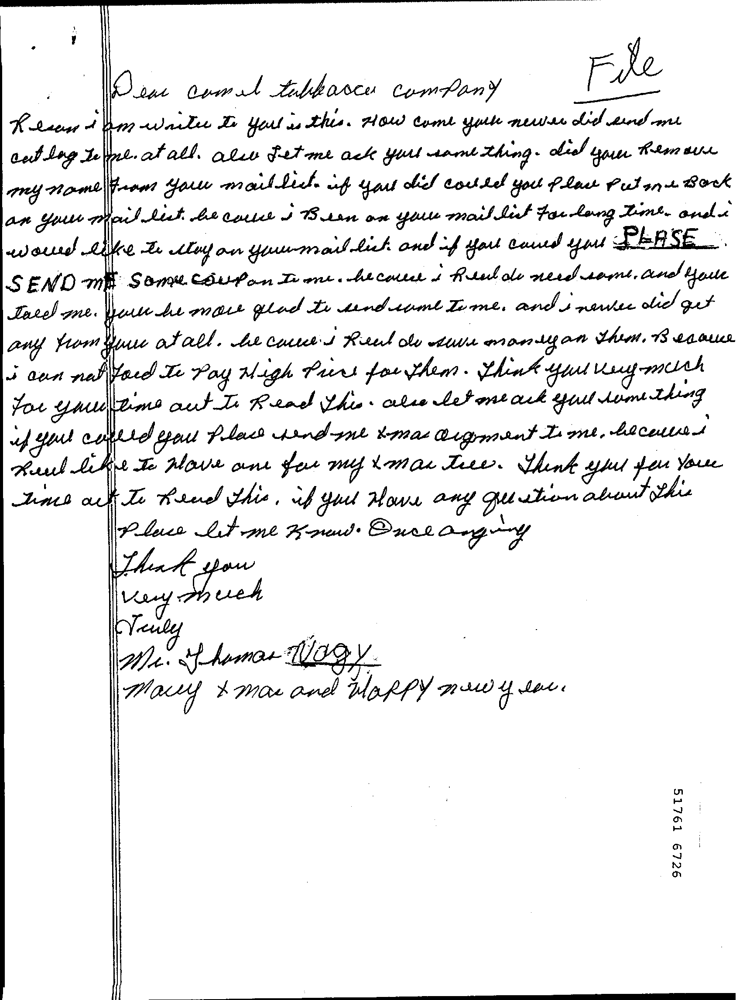 File
Dear camel tabbacco company
Reson i am write to you is this. How come your never did send me
cat log to me. at all. also let me ask you some thing. did your Remove
my name from your mail list. if you did could you Plase Put me Back
on your mail list. because i Been on your mail list for long time. and i
would like to stay on your mail list. and if you could you PLASE
SEND ME Some coupon to me. because i Real do need some. and your
told me. your be more glad to send some to me. and i never did get
any from your at all. because i Real do save money on them. Because
i can not ford to Pay High Price for them. Think you very much
for your time out to Read this. also let me ask you some thing
if you could you Plase send me xmas orgment to me. because i
Real like to Have one for my xmas tree. Think you for your
time out to Read this. if you Have any question about this
Plase let me Know. Once anging
Think you
very much
Truly
Mr. Thomas Nagy
Marry xmas and HAPPY new year.
51761 6726